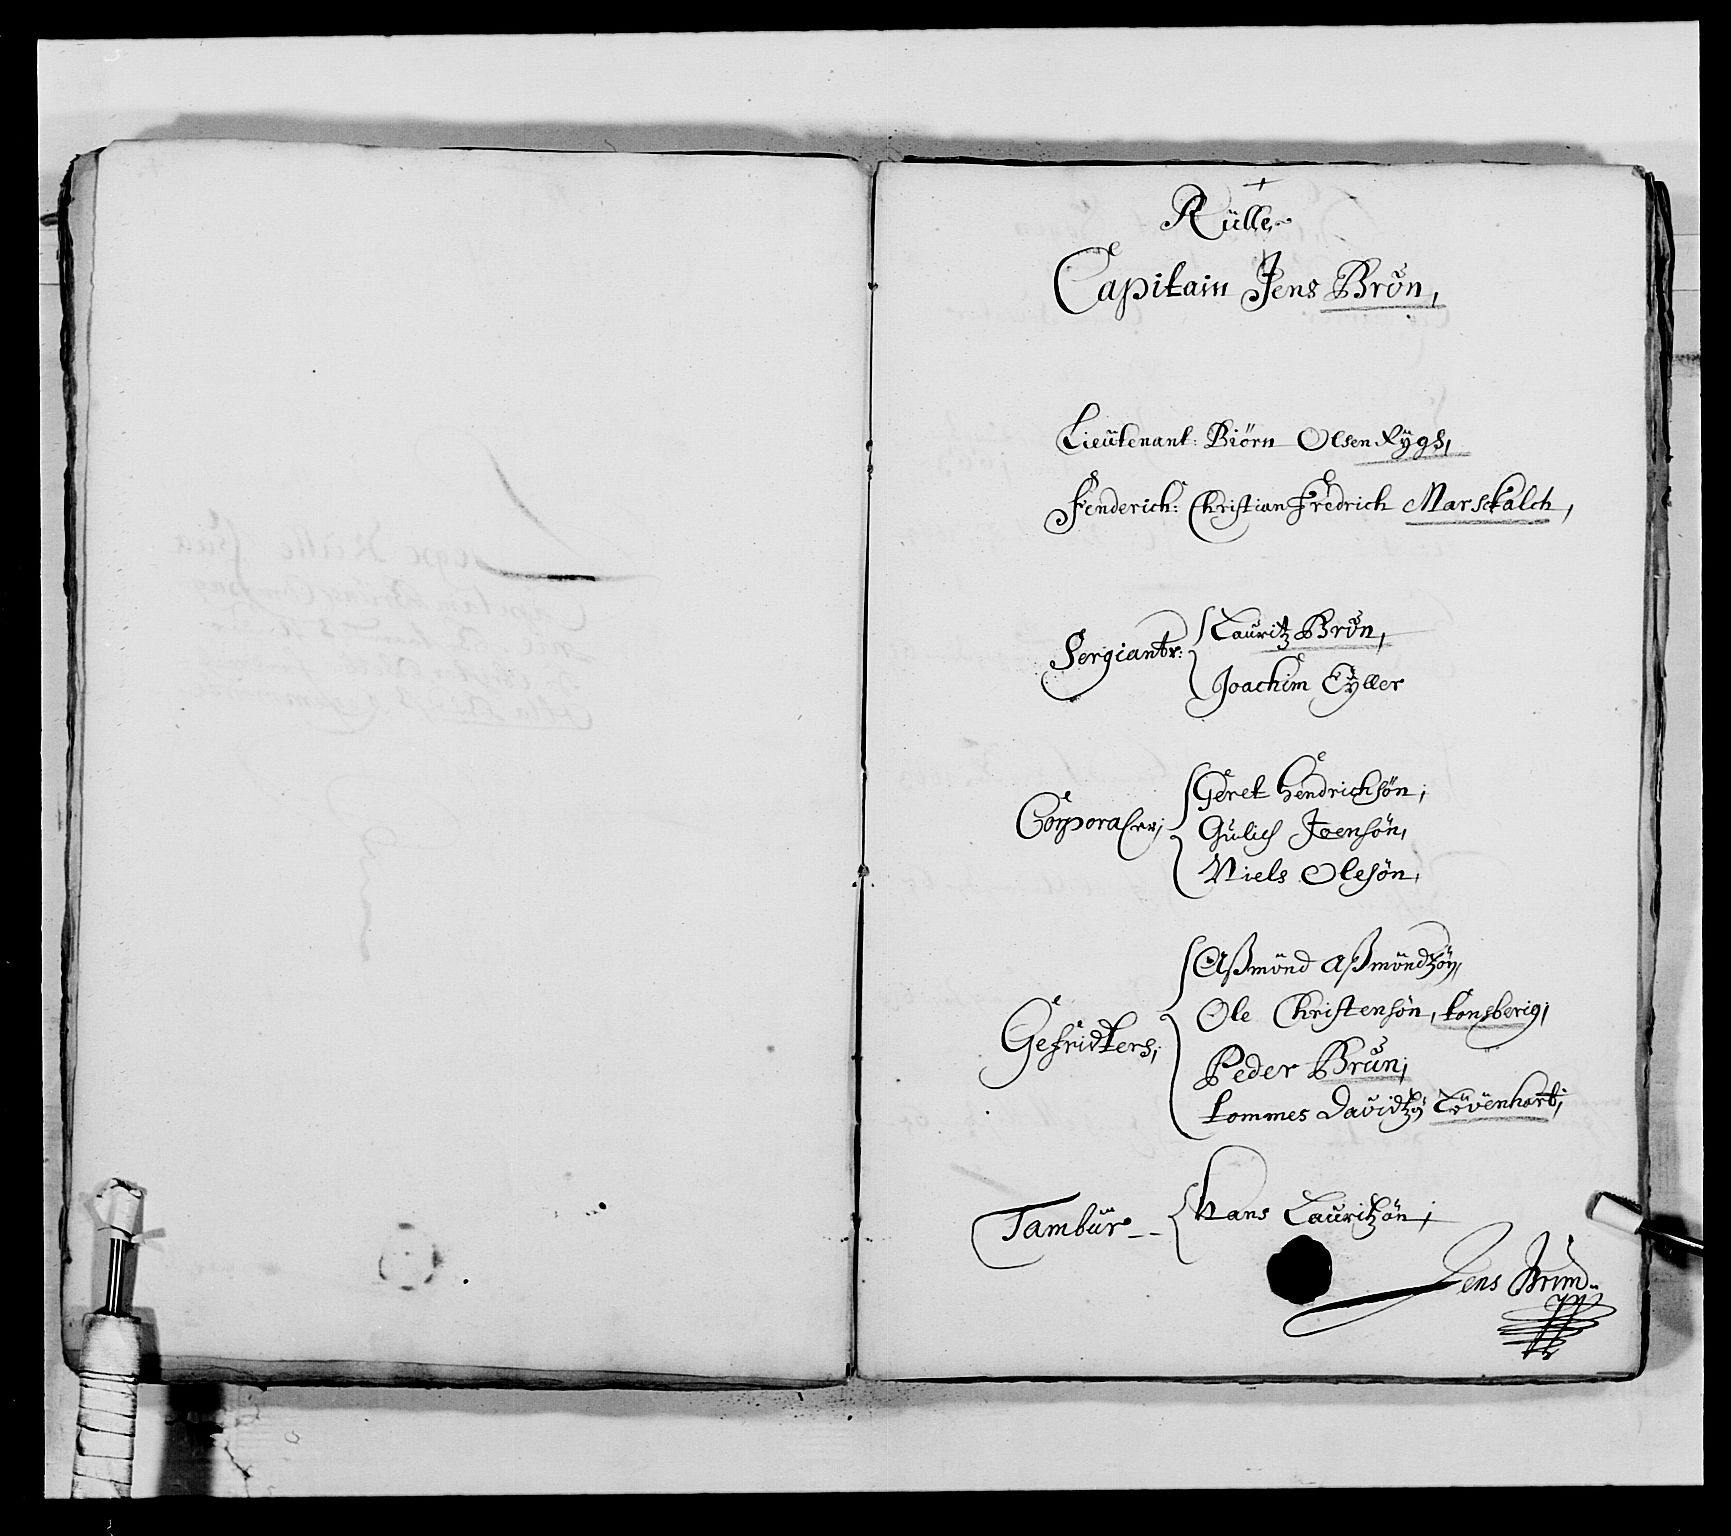 Rülle
Capitain Jens Brün,
Lieütenant: Biörn Olsen Rÿgh,
Fenderich: Christian Fredrich Marsckalch,
Sergianter: Lauritz Brün,
Joachim Eÿller
Corporaler; Geret Hendrichsön;
Gulich Joensön,
Niels Olesön,
Gefridters; Aßmünd Aßmündsøn,
Ole Christensön, tonsberig;
Peder Brün;
tommes Davidtzøn Lövenhart;
Tambür -- Hans Lauritzön;
Jens Brun